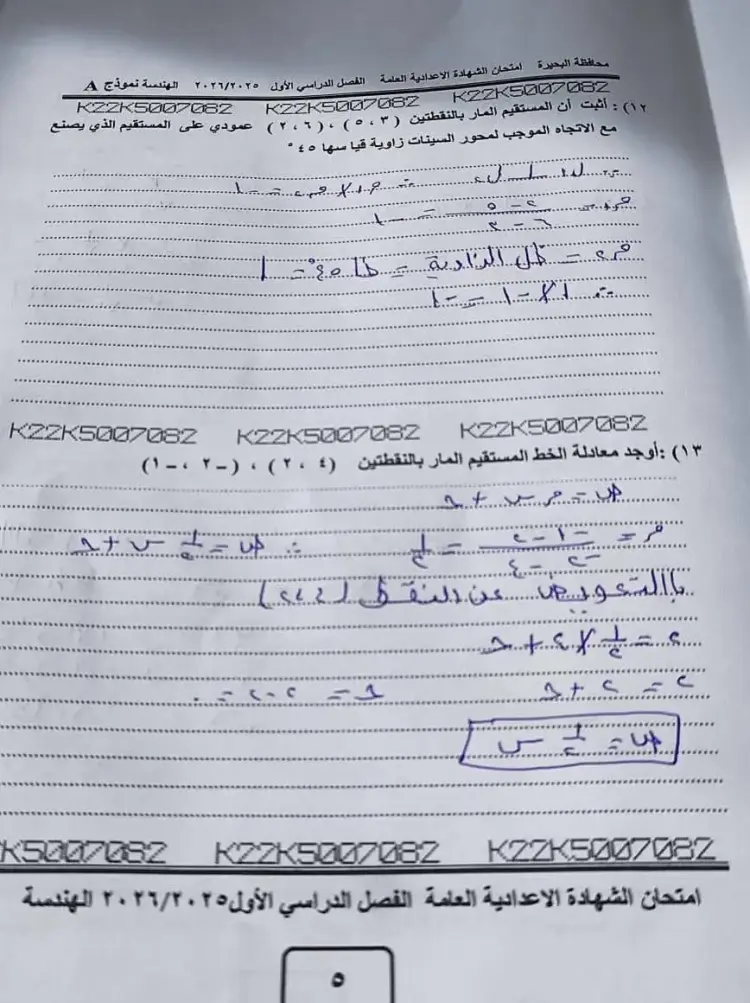 محافظة البحيرة امتحان الشهادة الاعدادية العامة الفصل الدراسي الأول ٢٠٢٦/٢٠٢٥ الهندسة نموذج A
K22K5007082 K22K5007082 K22K5007082
١٢) : أثبت أن المستقيم المار بالنقطتين (٣ ، ٥) ، (٦ ، ٢) عمودي على المستقيم الذي يصنع
مع الاتجاه الموجب لمحور السينات زاوية قياسها ٤٥°
∵ ل١ ⊥ ل٢ ∴ م١ × م٢ = -١
م١ = (٢ - ٥)/(٦ - ٣) = -١
م٢ = ظل الزاوية = ظا ٤٥° = ١
∴ ١ × -١ = -١
K22K5007082 K22K5007082 K22K5007082
١٣) :أوجد معادلة الخط المستقيم المار بالنقطتين (٤ ، ٢) ، (-٢ ، -١)
ص = م س + ج
م = (-١ - ٢)/(-٢ - ٤) = ١/٢ ∴ ص = ١/٢ س + ج
باالتعويض عن النقط (٤،٢)
٢ = ١/٢ × ٤ + ج
٢ = ٢ + ج ج = ٢ - ٢ = ٠
ص = ١/٢ س
K5007082 K22K5007082 K22K5007082
امتحان الشهادة الاعدادية العامة الفصل الدراسي الأول ٢٠٢٦/٢٠٢٥ الهندسة
٥